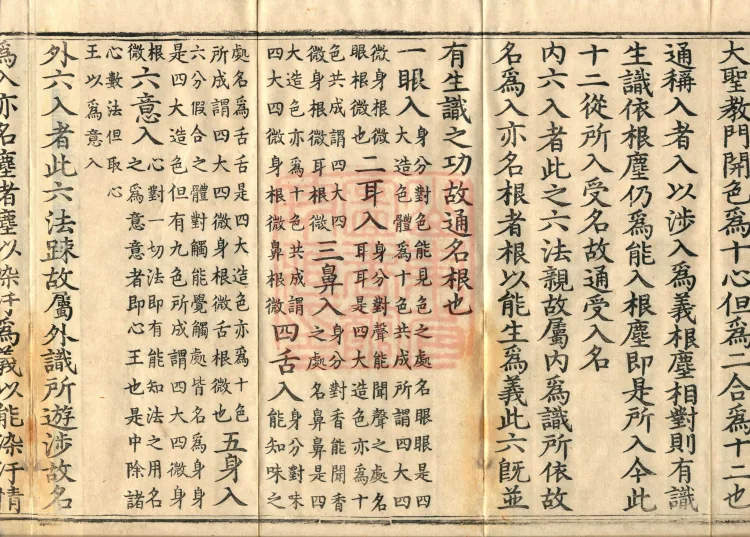 大聖教門開色爲十心但爲二合爲十二也
通稱入者入以涉入爲義根塵相對則有識
生識依根塵仍爲能入根塵即是所入今此
十二從所入受名故通受入名
內六入者此之六法親故屬內爲識所依故
名爲入亦名根者根以能生爲義此六旣並
有生識之功故通名根也
一眼入身分對色能見色之處名眼眼是四
大造色體爲十色共成所謂四大四
微身根微
眼根微也
二耳入身分對聲能聞聲之處名
耳耳是四大造色亦爲十
色共成謂四大四
微身根微耳根微
三鼻入身分對香能聞香
之處名鼻鼻是四
大造色亦爲十色共成謂
四大四微身根微鼻根微
四舌入身分對味
能知味之
處名爲舌舌是四大造色亦爲十色
所成謂四大四微身根微舌根微也
五身入
六分假合之體對觸能覺觸處皆名爲身身
是四大造色但有九色所成謂四大四微身
根
微
六意入心對一切法即有能知法之用名
爲意意者即心王也是中除諸
心數法但取心
王以爲意入
外六入者此六法踈故屬外識所遊涉故名
爲入亦名塵者塵以染汙爲義以能染汙情